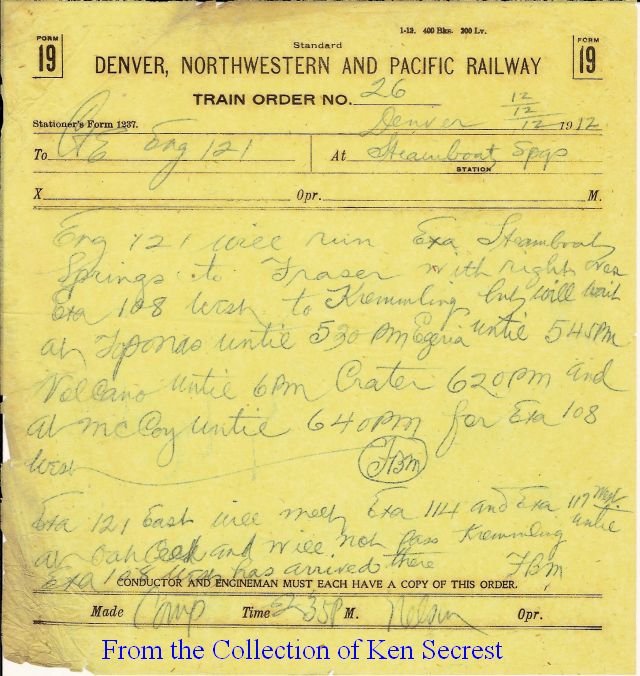 1-12. 400 Bks. 200 Lv.
FORM 19
Standard
FORM 19
DENVER, NORTHWESTERN AND PACIFIC RAILWAY
TRAIN ORDER NO. 26
Stationer's Form 1237.
Denver 12/12/12 1912
To C&E Eng 121 At Steamboat Spgs
STATION
X Opr. M.
Eng 121 will run Exa Steamboat
Springs to Fraser with right over
Exa 108 West to Kremmling but will wait
at Toponas until 530 PM Egeria until 545 PM
Volcano until 6 PM Crater 620 PM and
at McCoy until 640 PM for Exa 108
West
FBM
Exa 121 East will meet Exa 114 and Exa 117 West
at Oak Creek and will not pass Kremmling until
Exa 108 West has arrived there FBM
CONDUCTOR AND ENGINEMAN MUST EACH HAVE A COPY OF THIS ORDER.
Made Comp Time 235 P M. Nelson Opr.
From the Collection of Ken Secrest